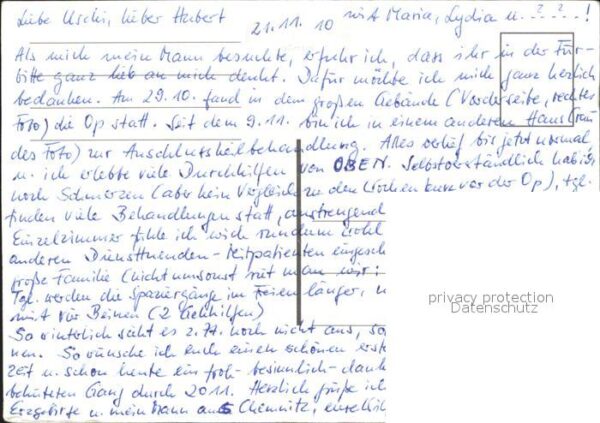 Liebe Uschi, lieber Herbert
21.11.10 mit Maria, Lydia u. ? ? ...!
Als mich mein Mann besuchte, erfuhr ich, dass ihr in der Für-
bitte ganz lieb an mich denkt. Dafür möchte ich mich ganz herzlich
bedanken. Am 29.10. fand in dem großen Gebäude (Vorderseite, rechtes
Foto) die Op statt. Seit dem 9.11. bin ich in einem anderen Haus (
des Foto) zur Anschlussheilbehandlung. Alles verlief bis jetzt normal
u. ich erlebte viele Durchhilfen von OBEN. Selbstverständlich hab ich
noch Schmerzen (aber kein Vergleich zu den Wochen kurz vor der Op), tgl.
finden viele Behandlungen statt, anstrengend
Einzelzimmer fühle ich mich rundum wohl
anderen Diensttuenden - Mitpatienten eingesch
große Familie (nicht umsonst ruft man wir:
Tgl. werden die Spaziergänge im Freien länger, u
mit vier Beinen (2 Gehhilfen)
So winterlich sieht es z.Zt. noch nicht aus, so
nen. So wünsche ich euch einen schönen erste
zeit u. schon heute ein froh-besinnlich-dank
behüteten Gang durch 2011. Herzlich grüße ich
Erzgebirge u. mein Mann aus Chemnitz, eure
privacy protection
Datenschutz